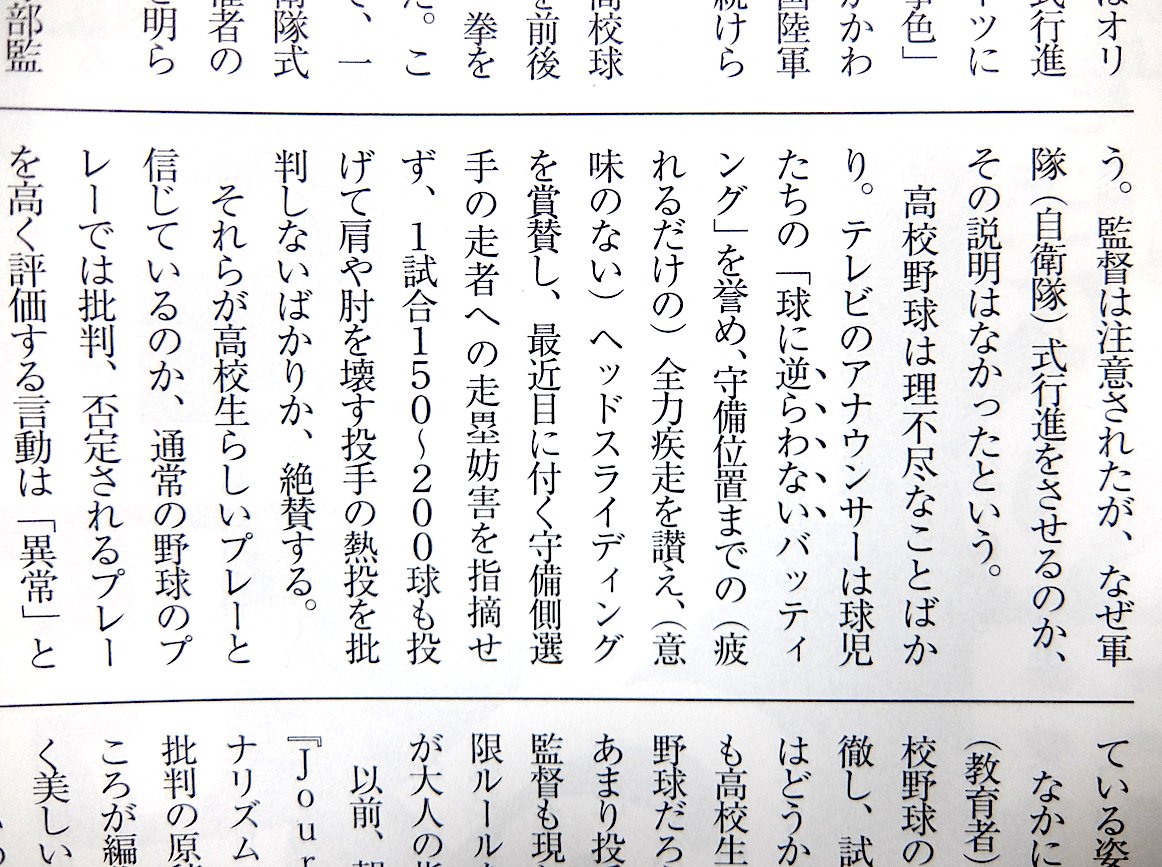 オリ
式行進
ツに
事色」
かわ
国陸軍
続けら
高校球
を前後
拳を
。こ
、一
衛隊式
催者の
明ら
部監
う。監督は注意されたが、なぜ軍
隊（自衛隊）式行進をさせるのか、
その説明はなかったという。
高校野球は理不尽なことばか
り。テレビのアナウンサーは球児
たちの「球に逆らわないバッティ
ング」を誉め、守備位置までの（疲
れるだけの）全力疾走を讃え、（意
味のない）ヘッドスライディング
を賞賛し、最近目に付く守備側選
手の走者への走塁妨害を指摘せ
ず、１試合１５０〜２００球も投
げて肩や肘を壊す投手の熱投を批
判しないばかりか、絶賛する。
それらが高校生らしいプレーと
信じているのか、通常の野球のプ
レーでは批判、否定されるプレー
を高く評価する言動は「異常」と
ている姿
なかに
（教育者）
校野球の
徹し、試
はどうか
も高校生
野球だろ
あまり投
監督も現
限ルール
が大人の
以前、
『Jour
ナリズム
批判の原
ころが編
く美しい